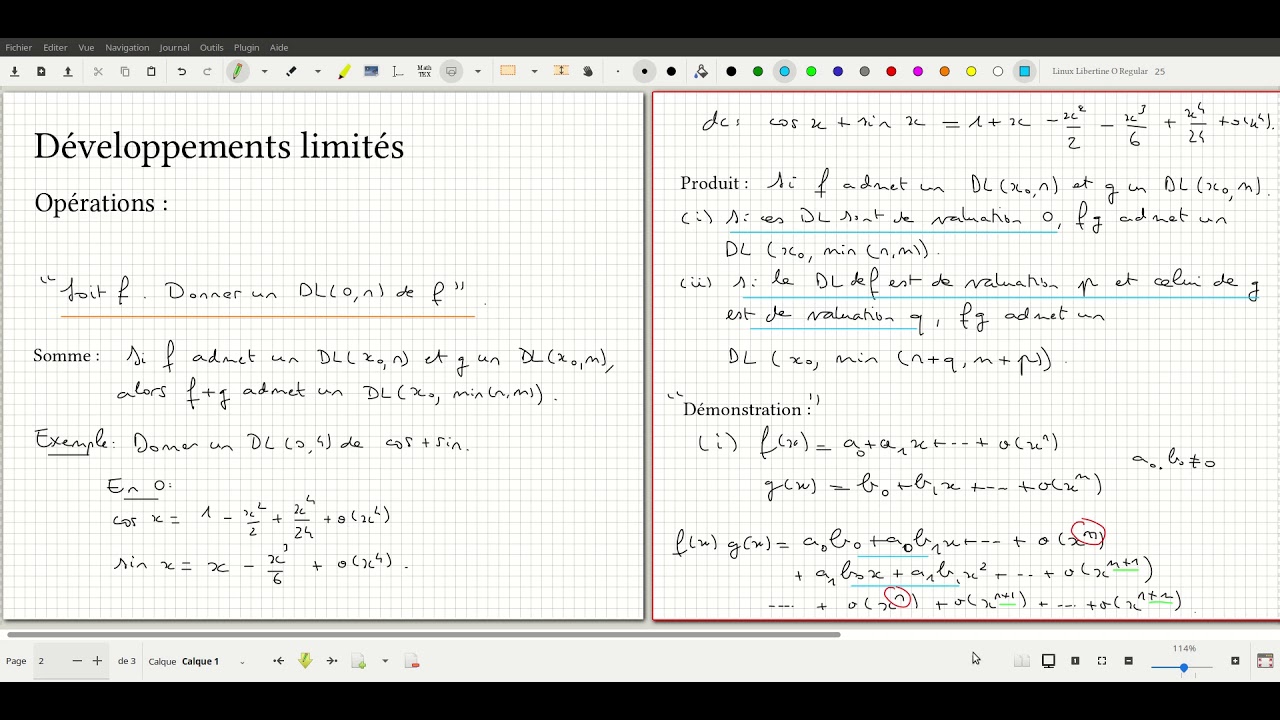 Fichier Editer Vue Navigation Journal Outils Plugin Aide
Math TEX
Linux Libertine O Regular 25
Développements limités
Opérations :
"Soit f. Donner un DL(0,n) de f".
Somme : Si f admet un DL(x₀,n) et g un DL(x₀,m),
alors f+g admet un DL(x₀, min(n,m)).
Exemple: Donner un DL(0,4) de cos + sin.
En 0:
cos x = 1 - x²/2 + x⁴/24 + o(x⁴)
sin x = x - x³/6 + o(x⁴).
dc: cos x + sin x = 1 + x - x²/2 - x³/6 + x⁴/24 + o(x⁴).
Produit : Si f admet un DL(x₀,n) et g un DL(x₀,m).
(i) si ces DL sont de valuation 0, fg admet un
DL (x₀, min(n,m)).
(ii) si le DL de f est de valuation p et celui de g
est de valuation q, fg admet un
DL (x₀, min (n+q, m+p)).
"Démonstration :"
(i) f(x) = a₀ + a₁x + ... + o(xⁿ)
a₀, b₀ ≠ 0
g(x) = b₀ + b₁x + ... + o(xᵐ)
f(x) g(x) = a₀b₀ + a₀b₁x + ... + o(xᵐ)
+ a₁b₀x + a₁b₁x² + ... + o(xᵐ⁺¹)
.... + o(xⁿ) + o(xⁿ⁺¹) + ... + o(xⁿ⁺ᵐ).
Page 2 de 3 Calque Calque 1
114%